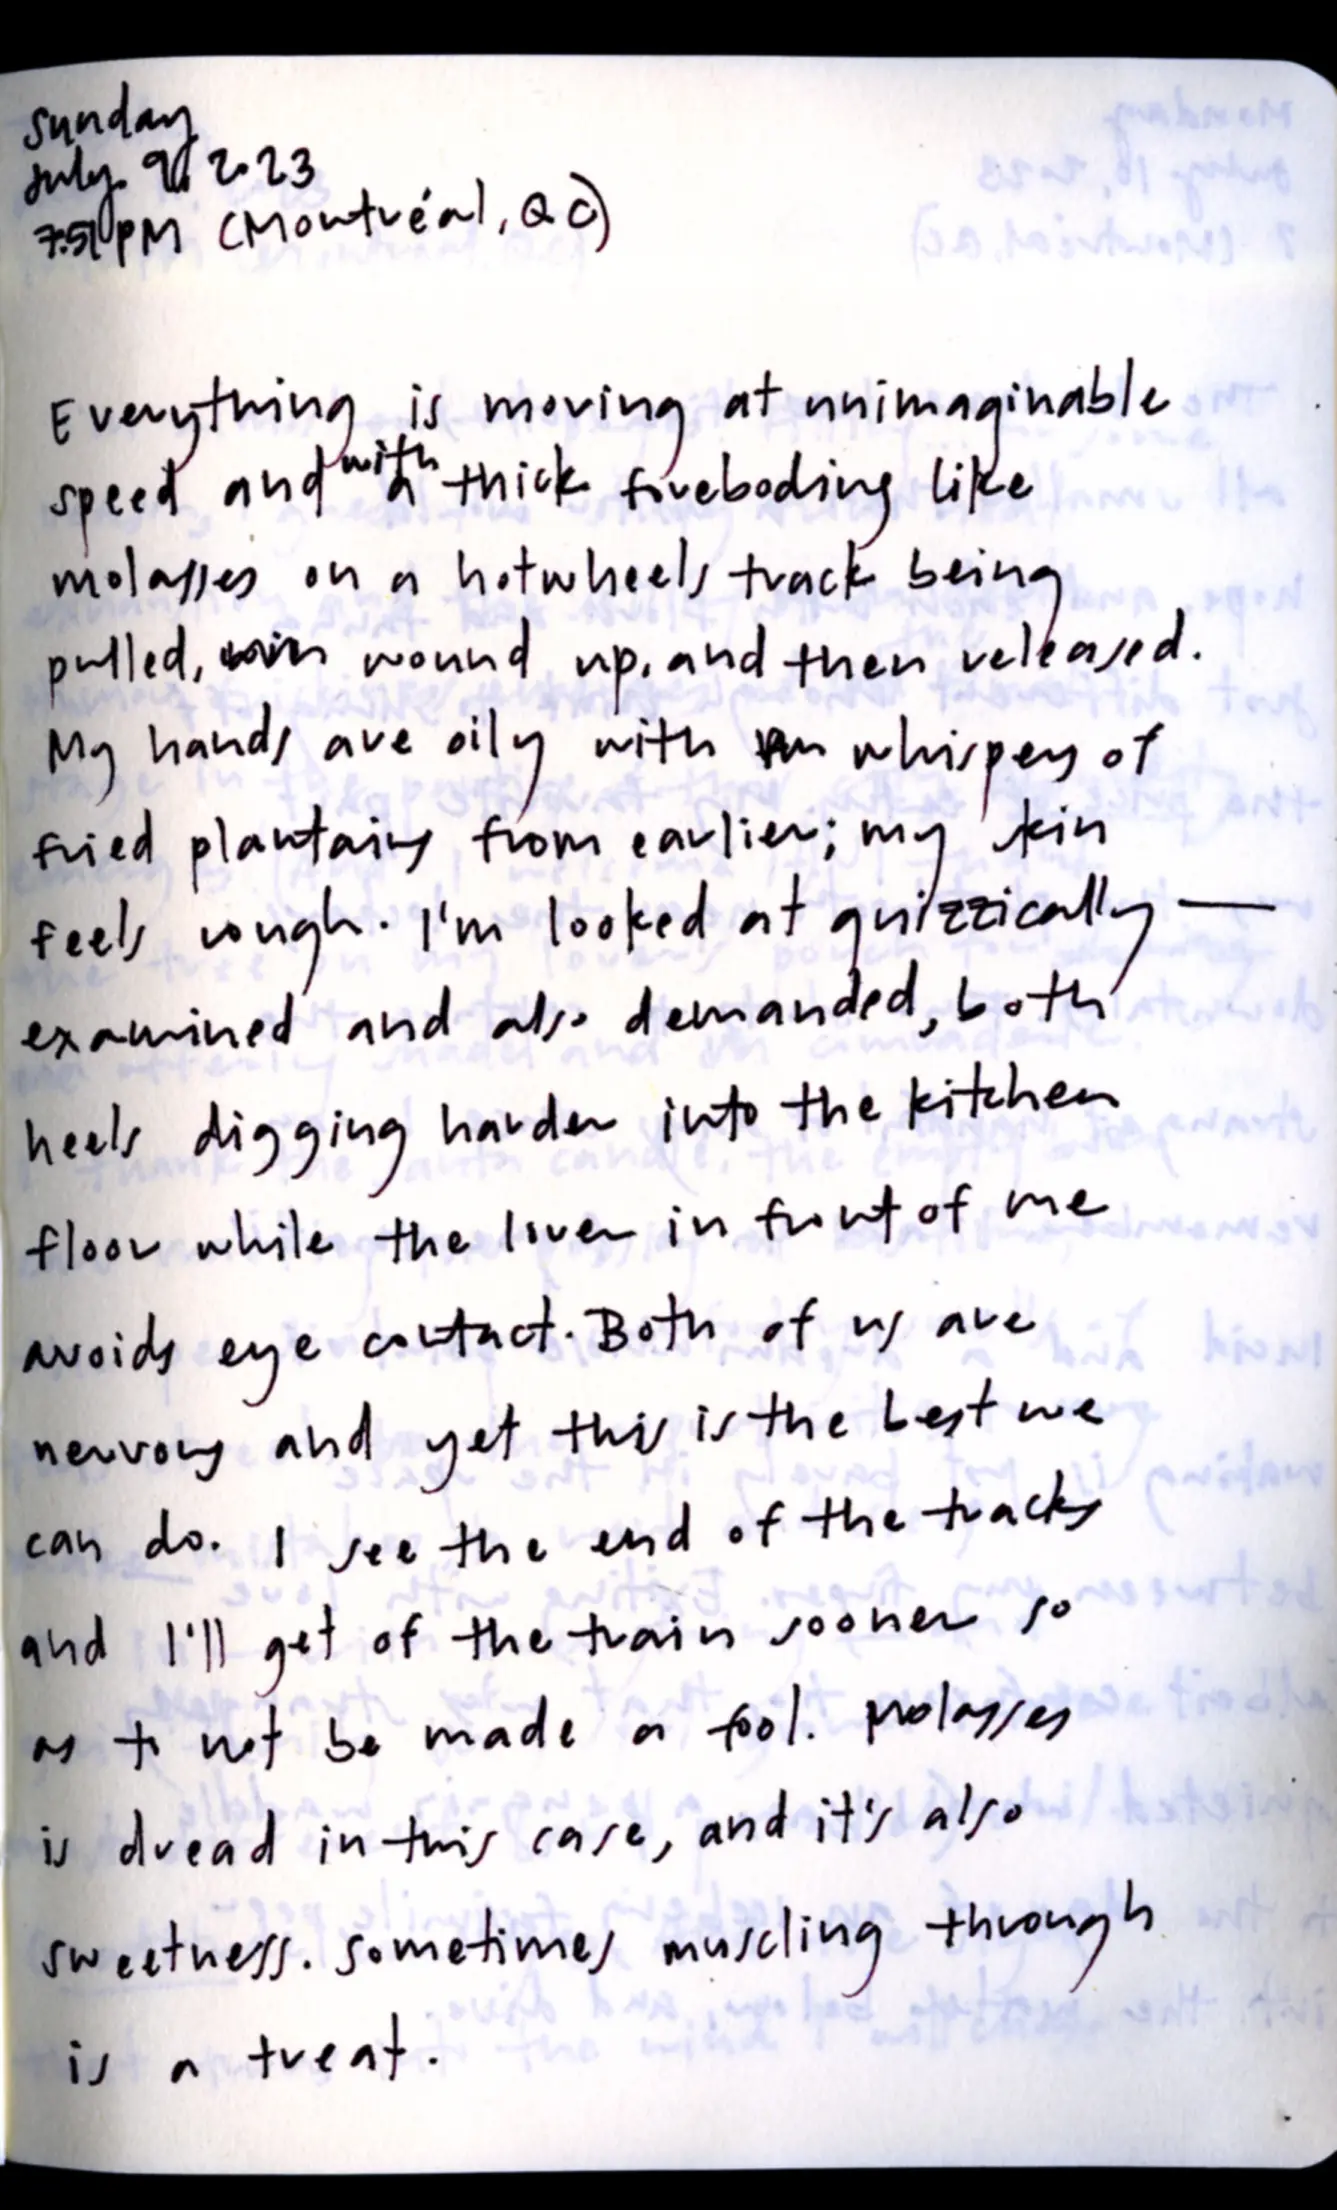 Sunday
July 9, 2023
7:51 PM (Montréal, QC)
Everything is moving at unimaginable
speed and with a thick foreboding like
molasses on a hotwheels track being
pulled, wound up, and then released.
My hands are oily with whispers of
fried plantains from earlier; my skin
feels rough. I'm looked at quizzically —
examined and also demanded, both
heels digging harder into the kitchen
floor while the lover in front of me
avoids eye contact. Both of us are
nervous and yet this is the best we
can do. I see the end of the tracks
and I'll get of the train sooner so
as to not be made a fool. Molasses
is dread in this case, and it's also
sweetness. Sometimes muscling through
is a treat.